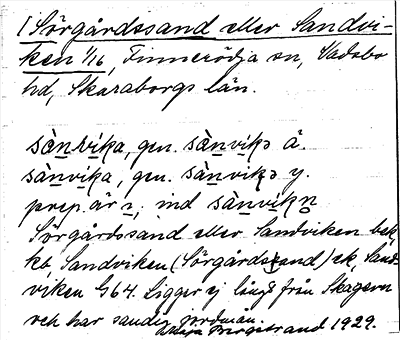 1 Sörgårdssand eller Sandvi-
ken 1/16, Finnerödja sn, Vadsbo
hd, Skaraborgs län.
sànvika, gen. sànvikə ä.
sànvika, gen. sànvikə y.
prep. är i, ind sànvikn̥
Sörgårdssand eller Sandviken bek,
kt, Sandviken (Sörgårdssand) ek, Sand-
viken G64. Ligger ej långt från Skagern
och har sandig jordmån.
Bergstrand 1929.